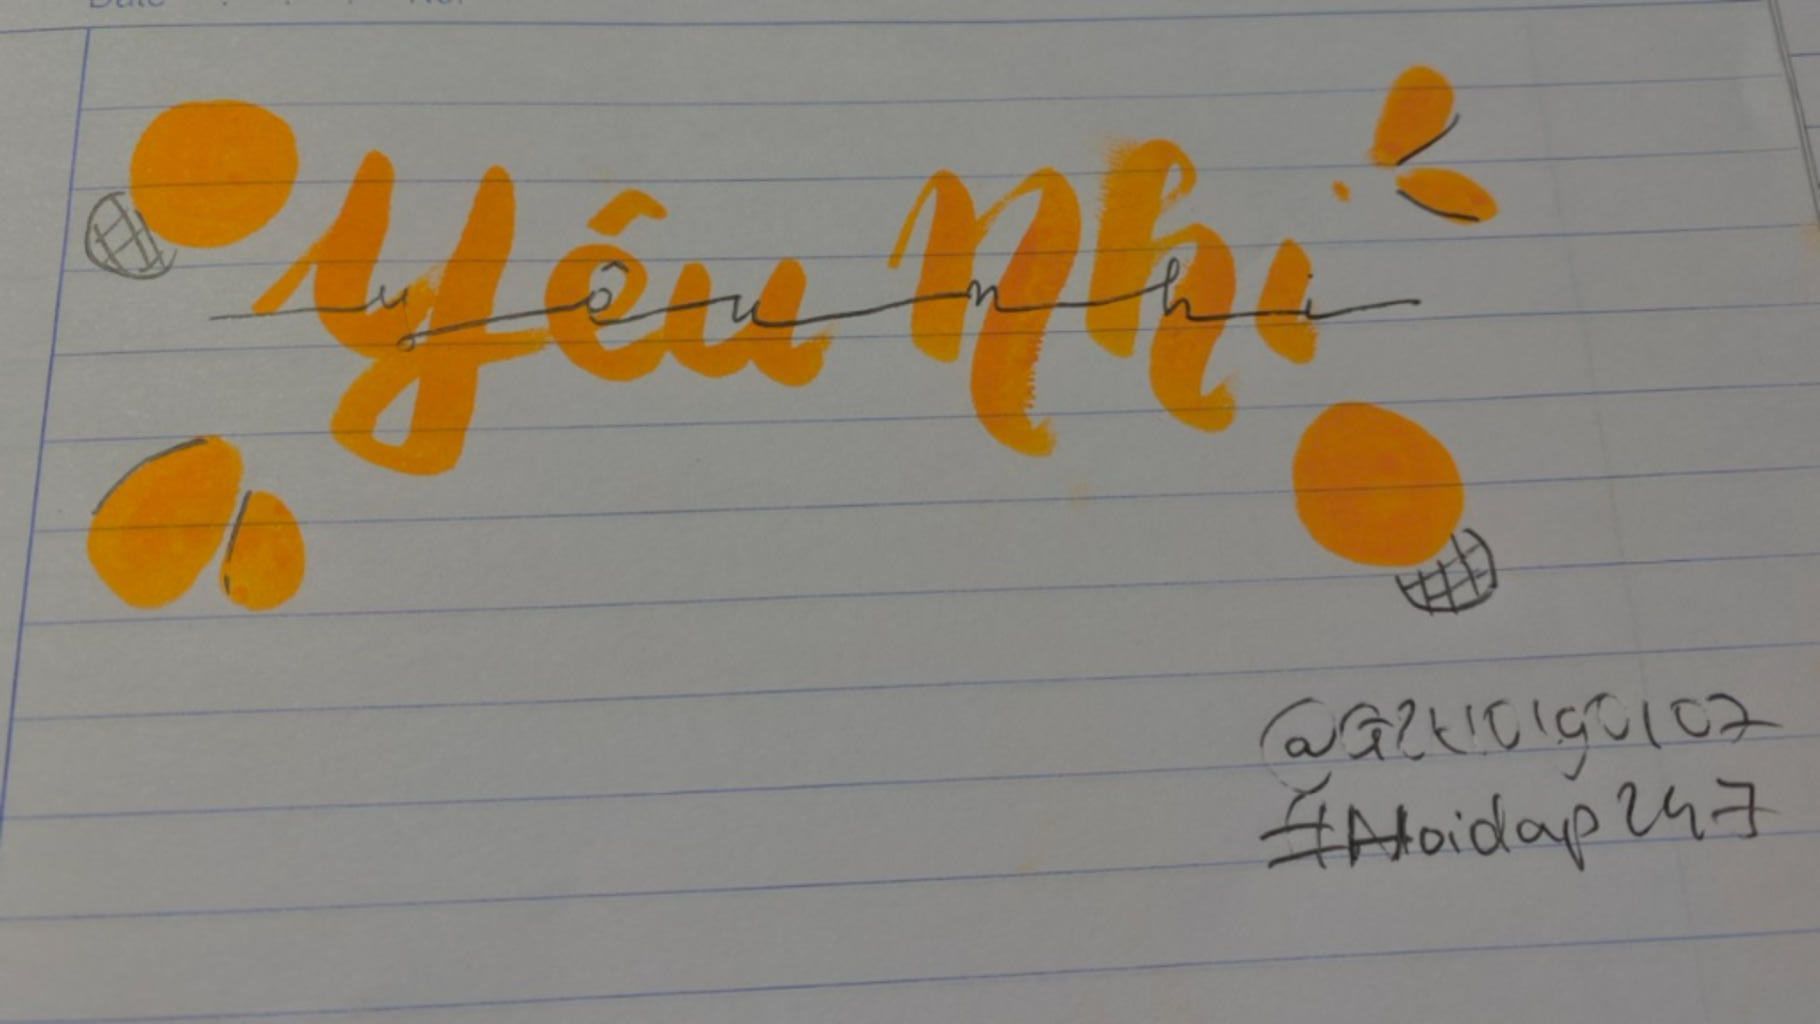 Yêu Nhi
yêu nhi
#Hoidap247